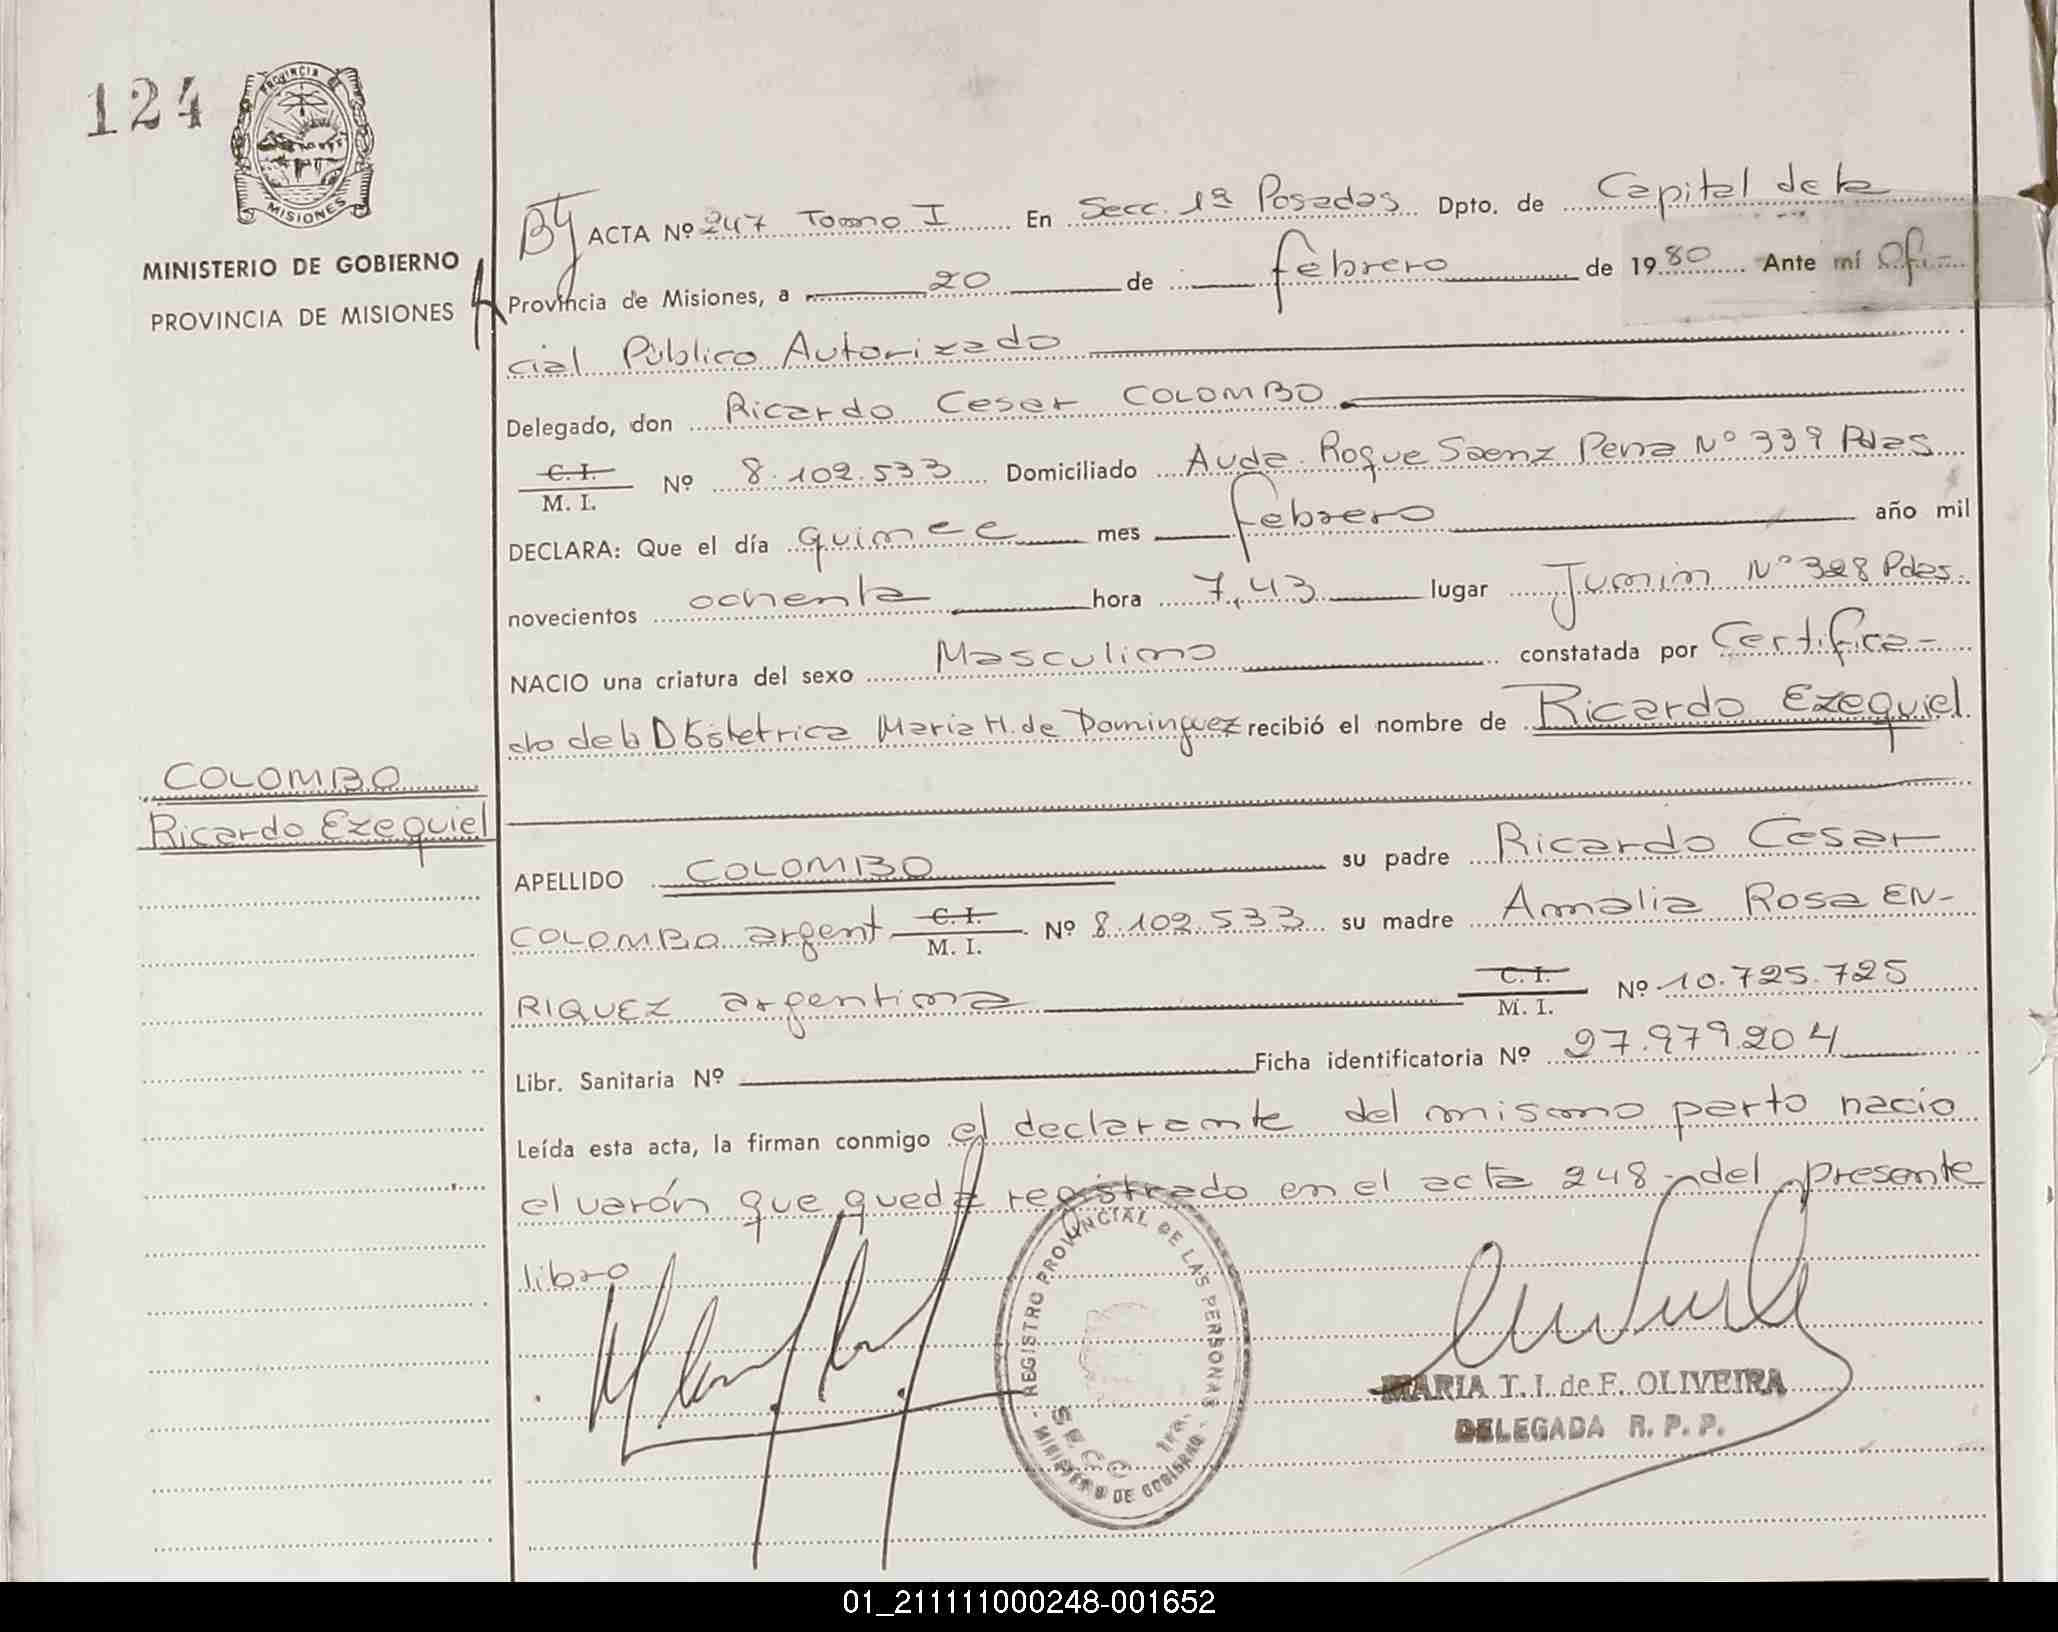 124
PROVINCIA DE
MISIONES
MINISTERIO DE GOBIERNO
PROVINCIA DE MISIONES
ACTA Nº 247 Tomo I En Secc. 1ª Posadas Dpto. de Capital de la
Provincia de Misiones, a 20 de febrero de 1980 Ante mí Ofi-
cial Público Autorizado
Delegado, don Ricardo Cesar COLOMBO
C. I.
M. I. Nº 8.102.533 Domiciliado Avda. Roque Saenz Pena Nº 339 Pdas
DECLARA: Que el día quince mes febrero año mil
novecientos ochenta hora 7,43 lugar Junin Nº 328 Pdas.
NACIO una criatura del sexo Masculino constatada por Certifica-
do de la Obstetrica Maria H. de Dominguez recibió el nombre de Ricardo Ezequiel
COLOMBO
Ricardo Ezequiel
APELLIDO COLOMBO su padre Ricardo Cesar
COLOMBO argent C. I.
M. I. Nº 8.102.533 su madre Amalia Rosa EN-
RIQUEZ argentina C. I.
M. I. Nº 10.725.725
Libr. Sanitaria Nº Ficha identificatoria Nº 27.979.204
Leída esta acta, la firman conmigo el declarante del mismo parto nacio
el varón que queda registrado en el acta 248 - del presente
libro
REGISTRO PROVINCIAL DE LAS PERSONAS
SECC 1ra.
- MINISTERIO DE GOBIERNO -
MARIA T. I. de F. OLIVEIRA
DELEGADA R. P. P.
01_211111000248-001652